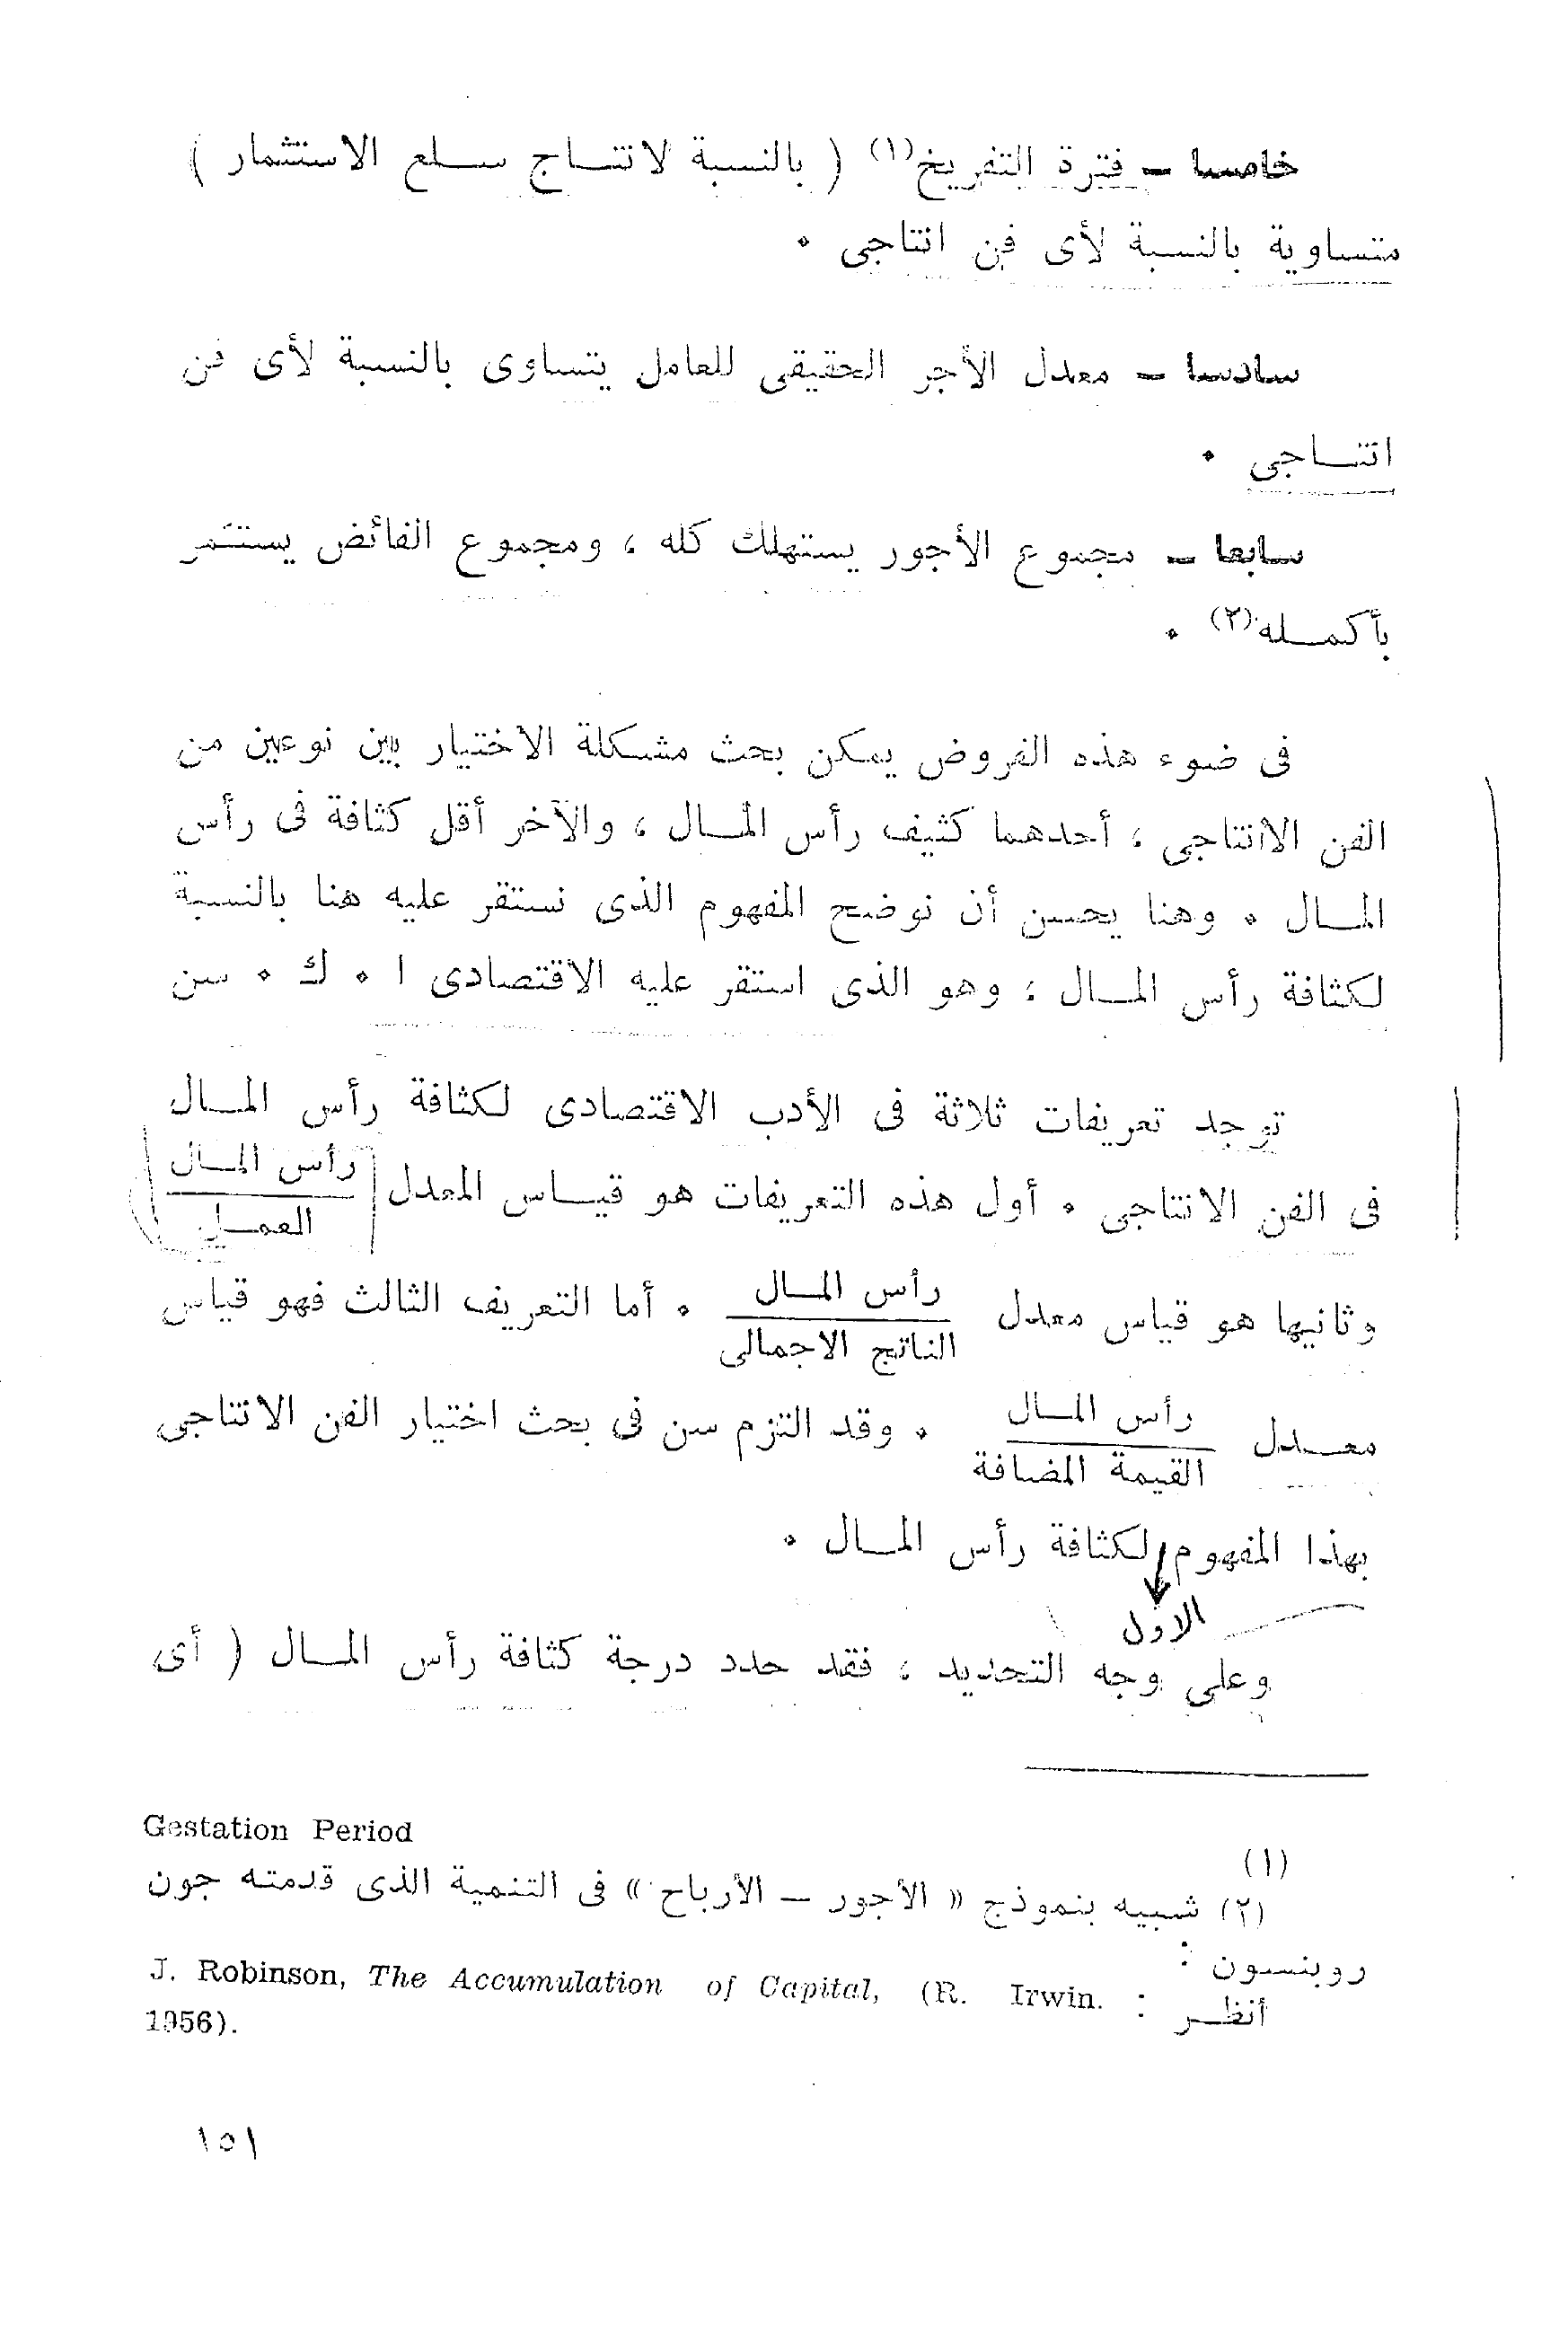 خامسا – فترة التفريخ(١) ( بالنسبة لانتاج سلع الاستثمار )
متساوية بالنسبة لأى فن انتاجى ٠
سادسا – معدل الأجر الحقيقى للعامل يتساوى بالنسبة لأى فن
انتاجى ٠
سابعا – مجموع الأجور يستهلك كله ، ومجموع الفائض يستثمر
بأكمله(٢) ٠
فى ضوء هذه الفروض يمكن بحث مشكلة الاختيار بين نوعين من
الفن الانتاجى ، أحدهما كثيف رأس المال ، والآخر أقل كثافة فى رأس
المال ٠ وهنا يحسن أن نوضح المفهوم الذى نستقر عليه هنا بالنسبة
لكثافة رأس المال ؛ وهو الذى استقر عليه الاقتصادى ا ٠ ك ٠ سن
توجد تعريفات ثلاثة فى الأدب الاقتصادى لكثافة رأس المال
فى الفن الانتاجى ٠ أول هذه التعريفات هو قياس المعدل رأس المال
العمل
وثانيها هو قياس معدل رأس المال ٠ أما التعريف الثالث فهو قياس
الناتج الاجمالى
معدل رأس المال ٠ وقد التزم سن فى بحث اختيار الفن الانتاجى
القيمة المضافة
بهذا المفهوم لكثافة رأس المال ٠
الاول
وعلى وجه التحديد ؛ فقد حدد درجة كثافة رأس المال ( أى
(١) Gestation Period
(٢) شبيه بنموذج « الأجور – الأرباح » فى التنمية الذى قدمته جون
روبنسون :
أنظر : J. Robinson, The Accumulation of Capital, (R. Irwin.
1956).
١٥١